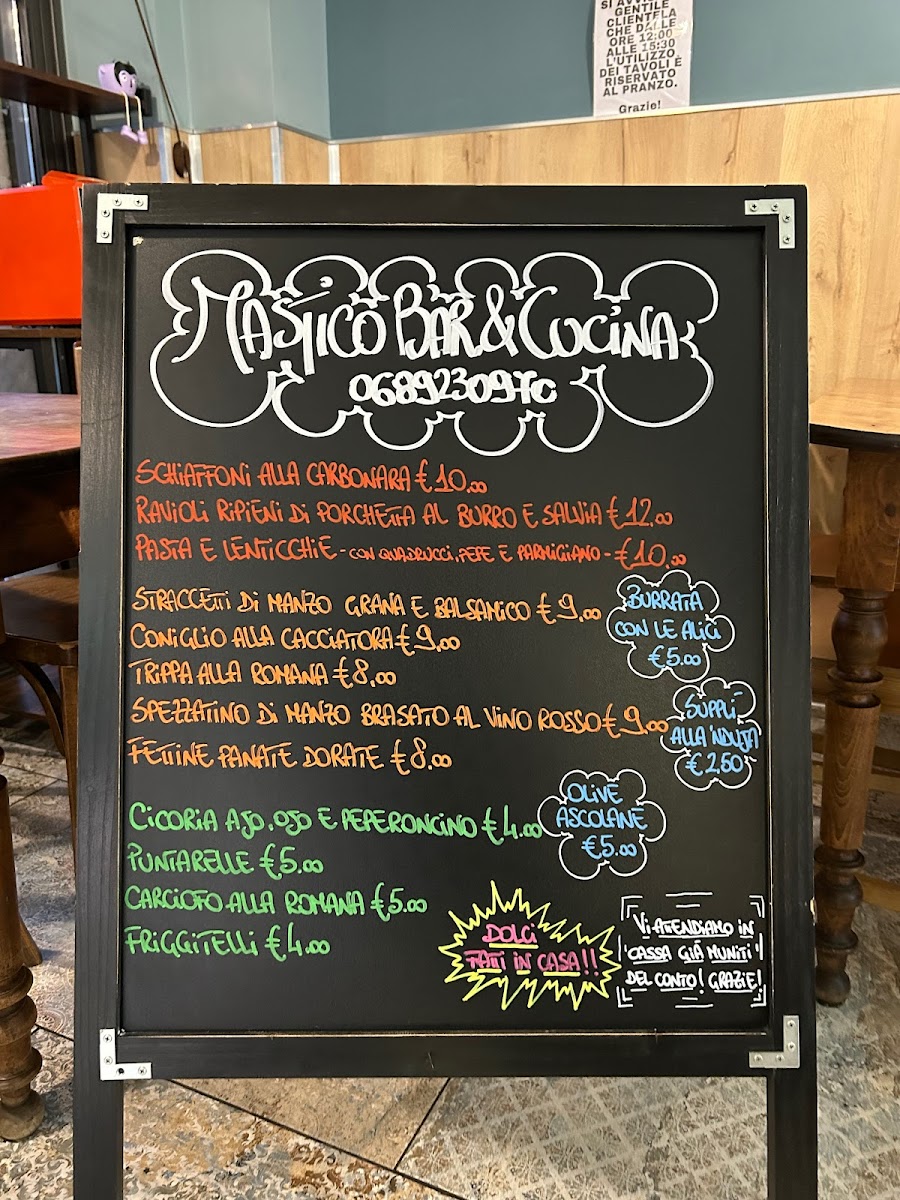 SI AVV
GENTILE
CLIENTELA
CHE DALLE
ORE 12:00
ALLE 15:30
L'UTILIZZO
DEI TAVOLI È
RISERVATO
AL PRANZO.
Grazie!
MASTICO BAR & CUCINA
0689230970
SCHIAFFONI ALLA CARBONARA € 10,00
RAVIOLI RIPIENI DI PORCHETTA AL BURRO E SALVIA €12,00
PASTA E LENTICCHIE - CON QUADRUCCI, PEPE E PARMIGIANO - €10,00
STRACCETTI DI MANZO GRANA E BALSAMICO € 9,00
CONIGLIO ALLA CACCIATORA € 9,00
TRIPPA ALLA ROMANA € 8,00
SPEZZATINO DI MANZO BRASATO AL VINO ROSSO € 9,00
FETTINE PANATE DORATE € 8,00
BURRATA
CON LE ALICI
€5,00
SUPPLÌ
ALLA 'NDUJA
€ 2,50
OLIVE
ASCOLANE
€5,00
CICORIA AJO, OJO E PEPERONCINO €4,00
PUNTARELLE €5,00
CARCIOFO ALLA ROMANA €5,00
FRIGGITELLI €4,00
DOLCI
FATTI IN CASA!!
VI ATTENDIAMO IN
CASSA GIÁ MUNITI
DEL CONTO! GRAZIE!